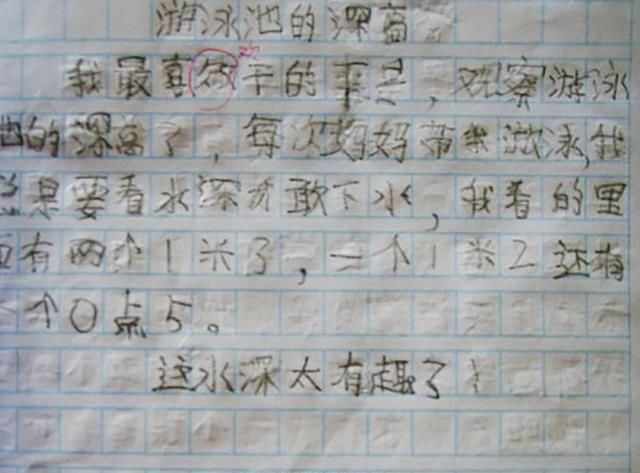 游泳池的深高
我最喜欢干的事是，观察游泳
池的深高了，每次妈妈带我游泳，我
总是要看水深才敢下水，我看的里
面有两个1米3，三个1米2还有
个0点5。
这水深太有趣了！